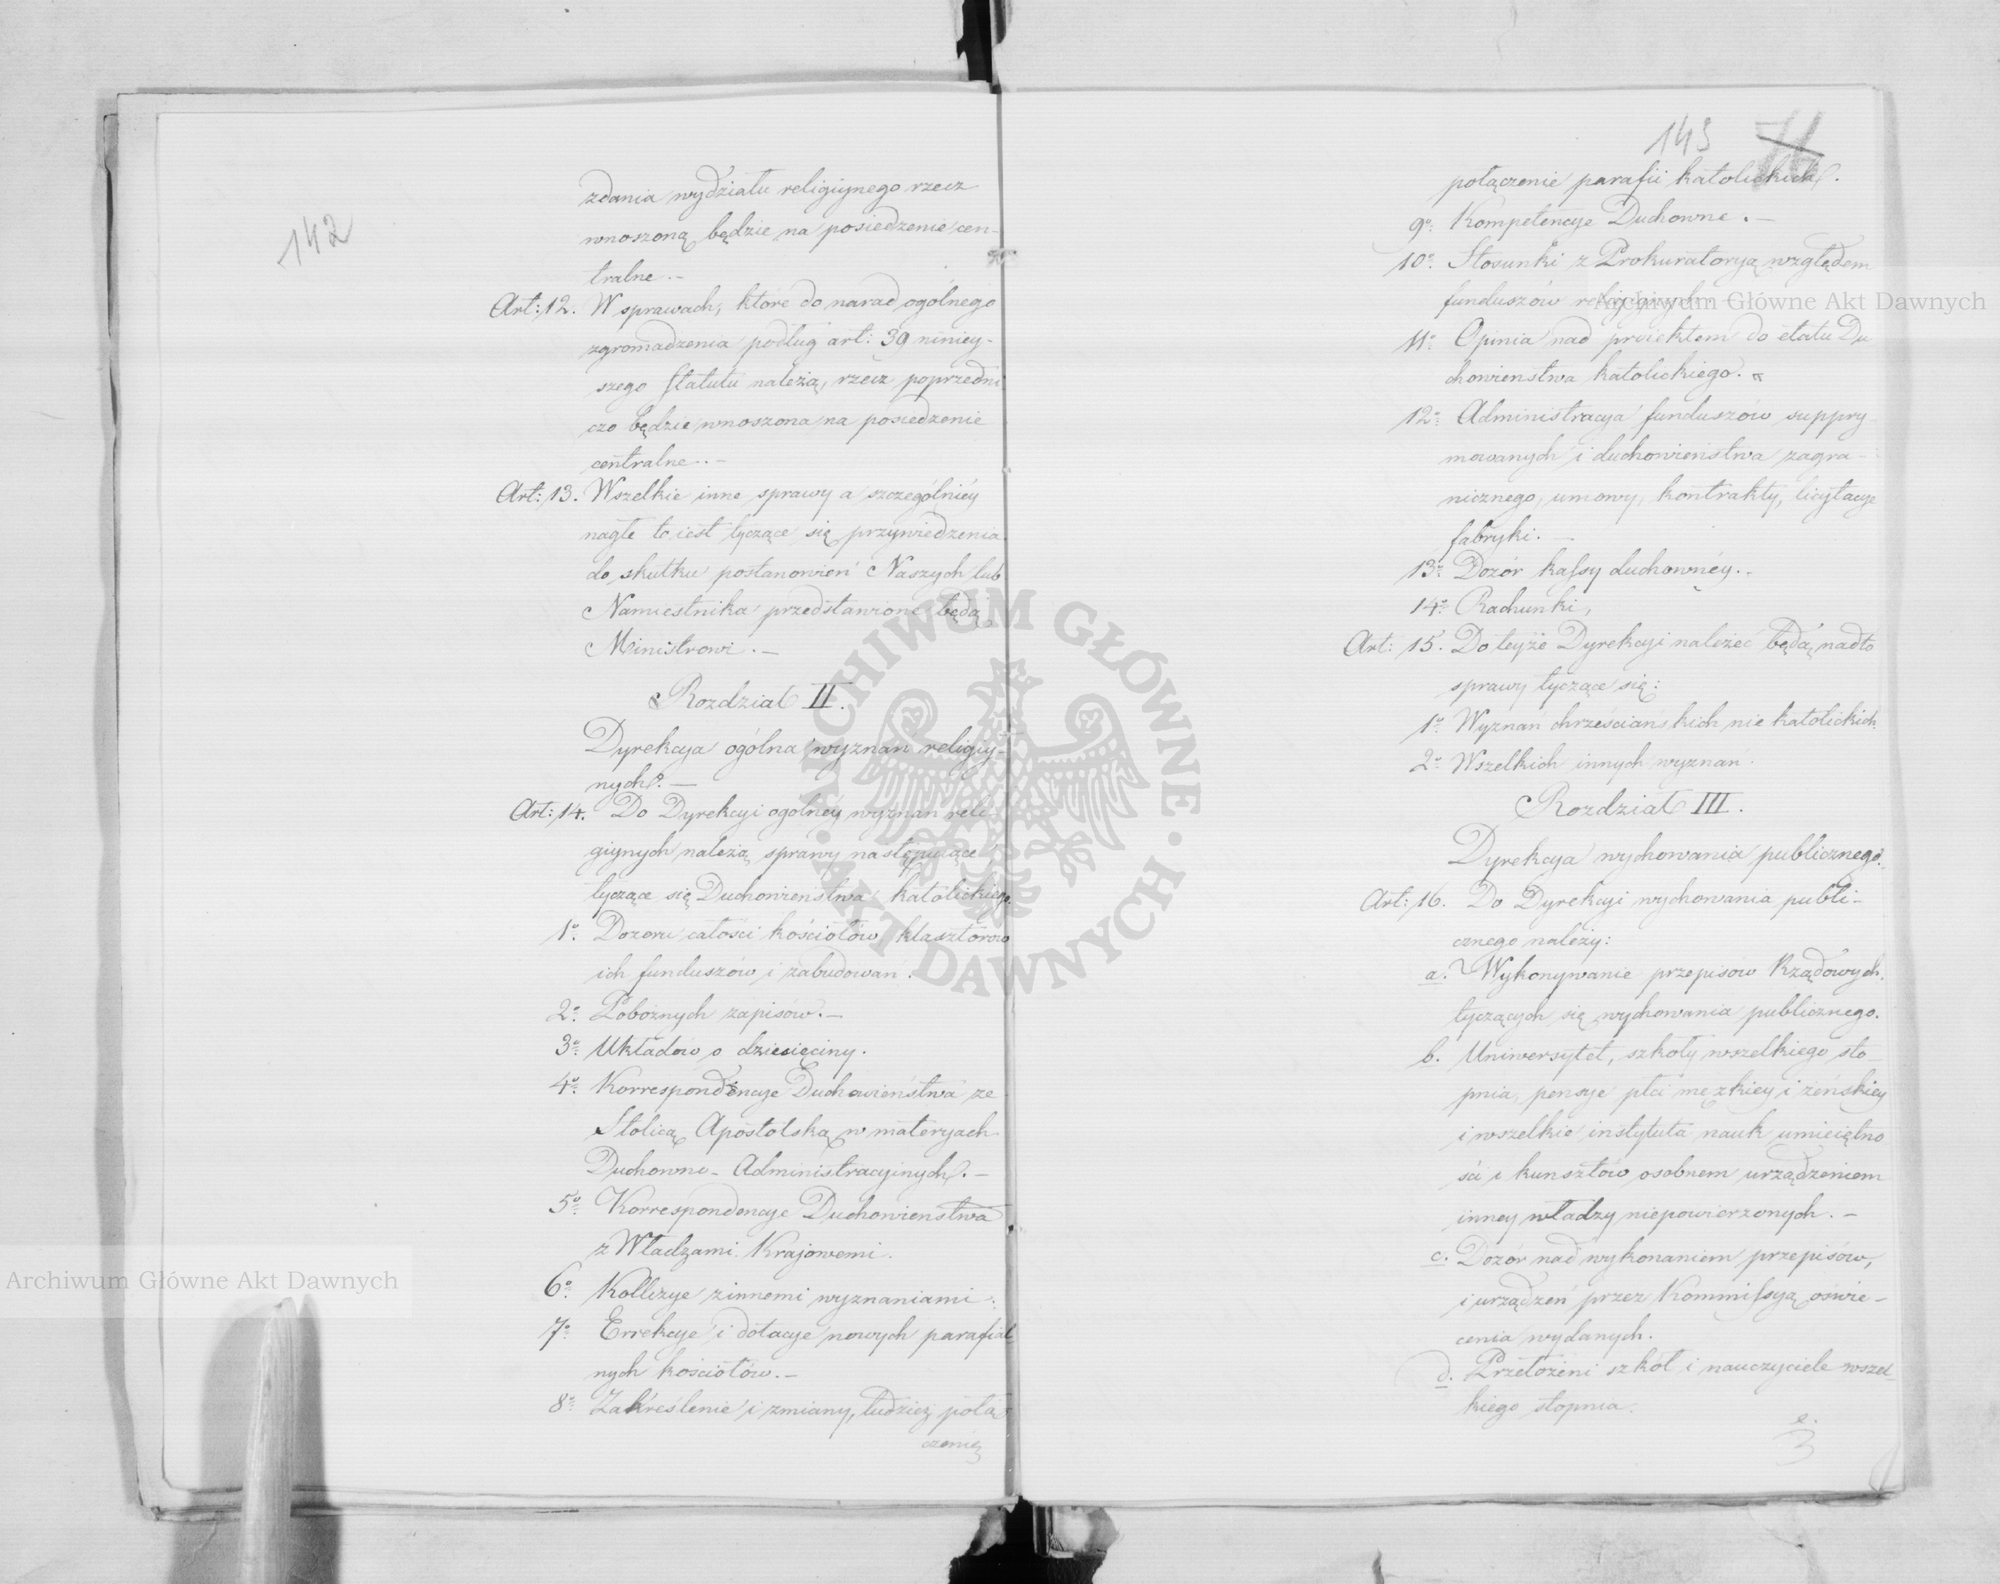 142
zdania wydziału religiynego rzecz
wnoszoną będzie na posiedzenie cen-
tralne.-
Art: 12. W sprawach, które do narad ogólnego
zgromadzenia podług art: 39 niniey-
szego Statutu należą, rzecz poprzedni
czo będzie wnoszona na posiedzenie
centralne.-
Art: 13. Wszelkie inne sprawy a szczególniéy
nagłe to iest tyczące się przywiedzenia
do skutku postanowień Naszych lub
Namiestnika przedstawione będą
Ministrowi.-
Rozdział II.
Dyrekcya ogólna wyznań religiy-
nych.-
Art: 14. Do Dyrekcyi ogólnéy wyznań reli-
giynych należą sprawy następuiące
tyczące się Duchowieństwa katolickiego.
1o. Dozoru całości kościołów, klasztorów
ich funduszów i zabudowań.
2o. Pobożnych zapisów.-
3o. Układów o dziesięciny.
4o. Korrespondencye Duchowieństwa ze
Stolicą Apostolską w materyach
Duchowno-Administracyinych.-
5o. Korrespondencye Duchowieństwa
z Władzami Krajowemi.
6o. Kollizye z innemi wyznaniami.
7o. Errekcye i dotacye nowych parafial
nych kościołów.-
8o. Zakréślenie i zmiany, tudzież połą-
czenie
143 71
połączenie parafii katolickich.
9o. Kompetencye Duchowne.-
10o. Stosunki z Prokuratoryą względem
funduszów religiynych.
11o. Opinia nad proiektem do etatu Du
chowieństwa katolickiego.
12o. Administracya funduszów suppry-
mowanych i duchowieństwa zagra-
nicznego, umowy, kontrakty, licytacye
fabryki.-
13o. Dozór kassy duchownéy.-
14o. Rachunki,
Art: 15. Do teyże Dyrekcyi należeć będą nadto
sprawy tyczące się:
1o. Wyznań chrześciańskich nie katolickich.
2o. Wszelkich innych wyznań.
Rozdział III.
Dyrekcya wychowania publicznego.
Art: 16. Do Dyrekcyi wychowania publi-
cznego należy:
a. Wykonywanie przepisów Rządowych
tyczących się wychowania publicznego.
b. Uniwersytet, szkoły wszelkiego sto-
pnia, pensye płci męzkiey i żeńskiey
i wszelkie instytuta nauk umieiętno
ści i kunsztów osobnem urządzeniem
inney władzy niepowierzonych.-
c. Dozór nad wykonaniem przepisów,
i urządzeń przez Kommissyą oświe-
cenia wydanych.
d. Przełożeni szkół i nauczyciele wszel-
kiego stopnia.
e.
3
Archiwum Główne Akt Dawnych
Archiwum Główne Akt Dawnych
ARCHIWUM GŁÓWNE · AKT DAWNYCH ·